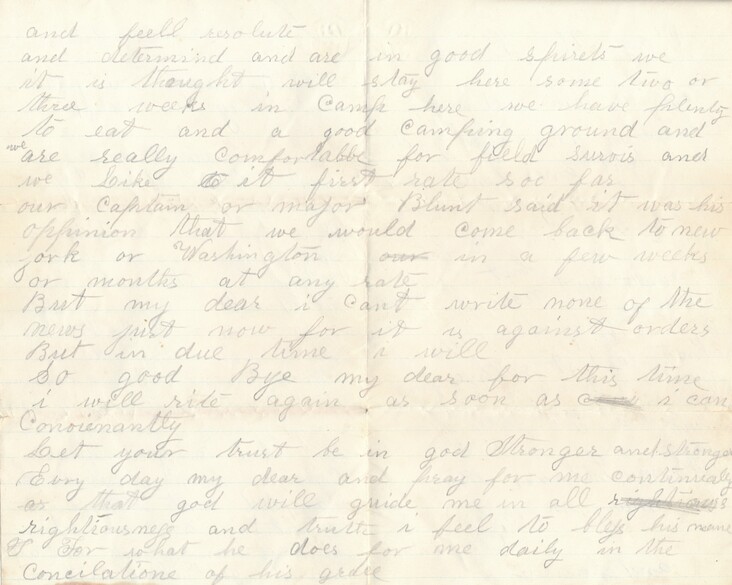 and feell resolute
and determind and are in good spirets we
it is thought will stay here some two or
three weeks in Camp here we have plenty
to eat and a good camping ground and
we are really comfortabbe for feeld survis and
we Like it first rate soo far
our Captain or major Blunt said it was his
oppinion that we would come back to new
york or Washington our in a few weeks
or months at any rate
But my dear i cant write none of the
news just now for it is against orders
But in due time i will
So good Bye my dear for this time
i will rite again as soon as i can
Convienantly
Let your trust be in god Stronger and stronger
Evry day my dear and pray for me continualy
as that god will guide me in all rightious
rightiousness and truth i feel to bless his name
For what he does for me daily in the
Concilatione of his grace